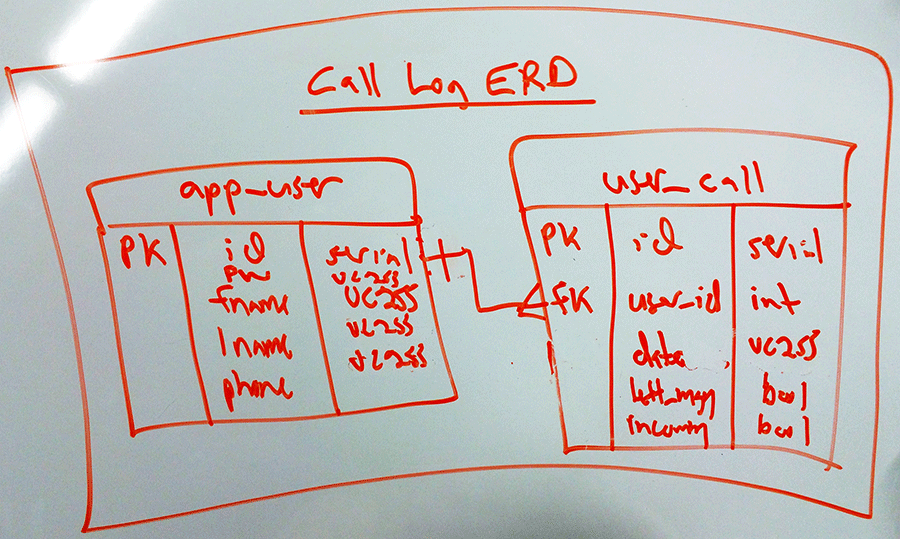 Call Log ERD
app_user
PK id serial
pw vc255
fname vc255
lname vc255
phone vc255
user_call
PK id serial
FK user_id int
data vc255
left_msg bool
incoming bool